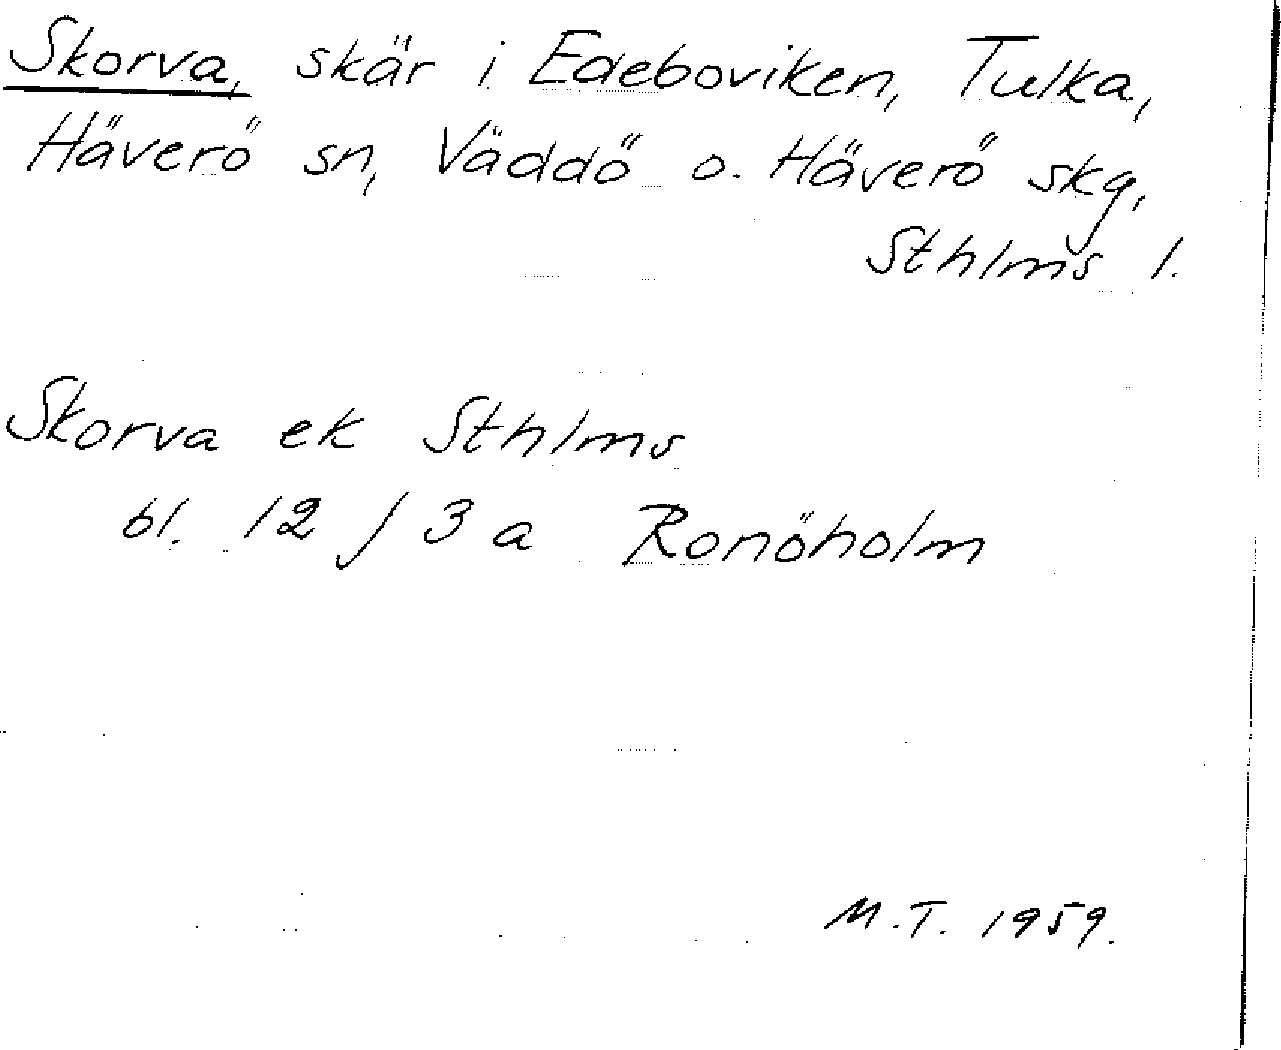 Skorva, skär i Edeboviken, Tulka,
Häverö sn, Väddö o. Häverö skg,
Sthlms l.
Skorva ek Sthlms
bl. 12 J 3 a Ronöholm
M.T. 1959.